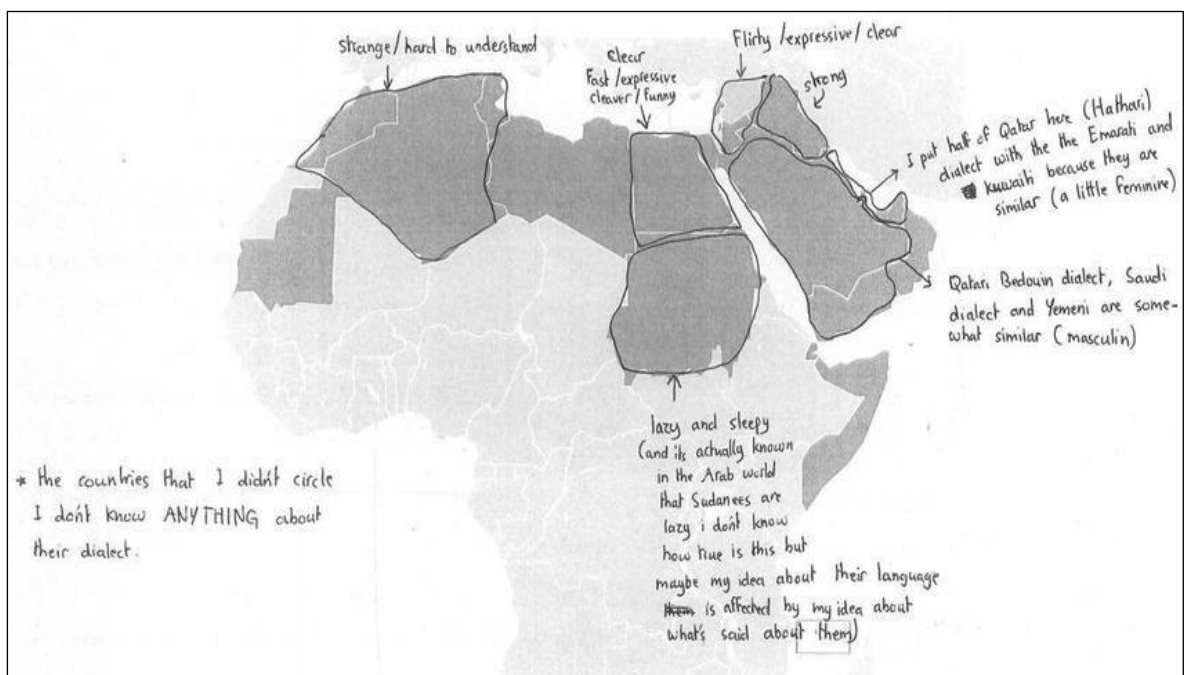 strange/hard to understand
Clear
Fast/expressive
cleaver/funny
Flirty/expressive/clear
strong
I put half of Qatar here (Hathari)
dialect with the the Emarati and
kuwaiti because they are
similar (a little feminine)
Qatari Bedouin dialect, Saudi
dialect and Yemeni are some-
what similar (masculin)
lazy and sleepy
(and its actually known
in the Arab world
that Sudanees are
lazy i don't know
how true is this but
maybe my idea about their language
is affected by my idea about
what's said about them)
* the countries that I didn't circle
I don't know ANYTHING about
their dialect.